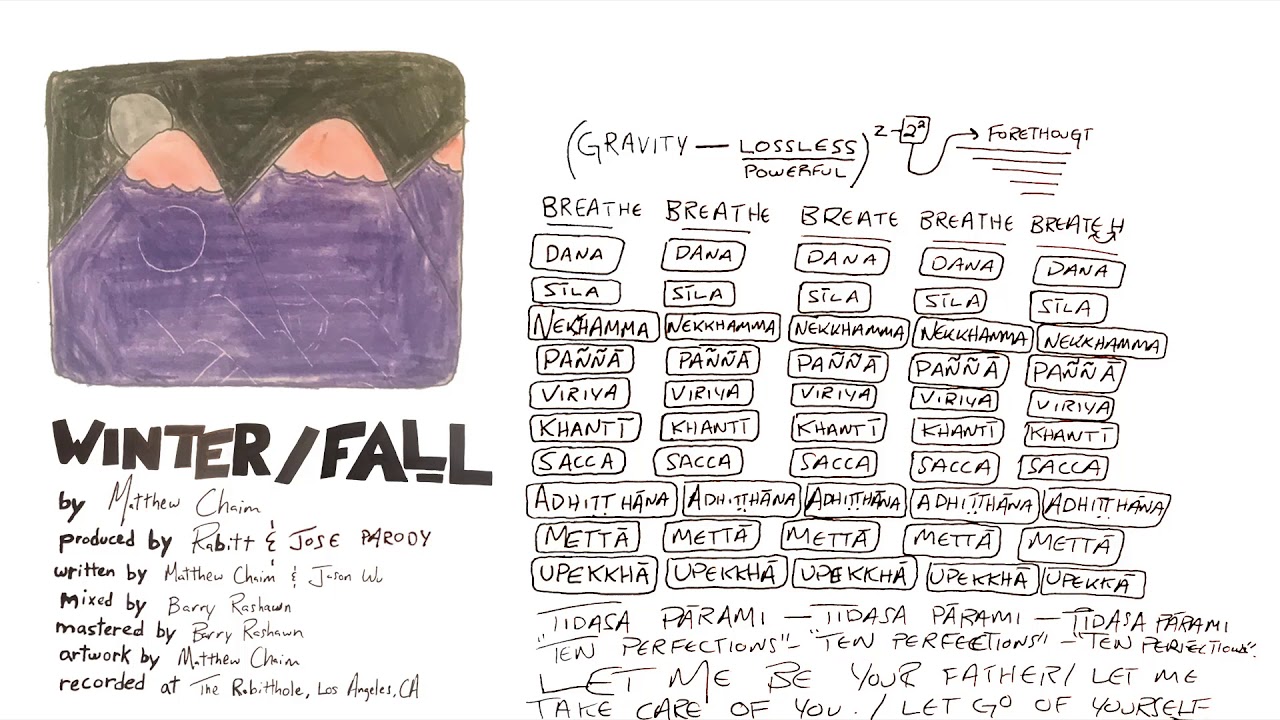 WINTER/FALL
by Matthew Chaim
produced by Rabitt & JOSE PARODY
written by Matthew Chaim & Jason Wu
Mixed by Barry Rashawn
mastered by Barry Rashawn
artwork by Matthew Chaim
recorded at The Rabitthole, Los Angeles, CA
(GRAVITY — LOSSLESS / POWERFUL)² - 2² → FORETHOUGT
BREATHE BREATHE BREATE BREATHE BREATEH
DANA DANA DANA DANA DANA
SĪLA SĪLA SĪLA SĪLA SĪLA
NEKKHAMMA NEKKHAMMA NEKKHAMMA NEKKHAMMA NEKKHAMMA
PAÑÑĀ PAÑÑĀ PAÑÑĀ PAÑÑĀ PAÑÑĀ
VIRIYA VIRIYA VIRIYA VIRIYA VIRIYA
KHANTĪ KHANTĪ KHANTĪ KHANTĪ KHANTĪ
SACCA SACCA SACCA SACCA SACCA
ADHIṬṬHĀNA ADHIṬṬHĀNA ADHIṬṬHĀNA ADHIṬṬHĀNA ADHIṬṬHĀNA
METTĀ METTĀ METTĀ METTĀ METTĀ
UPEKKHĀ UPEKKHĀ UPEKKHĀ UPEKKHĀ UPEKKĀ
TIDASA PĀRAMI — TIDASA PĀRAMI — TIDASA PĀRAMI
"TEN PERFECTIONS" - "TEN PERFEETIONS" - "TEN PERFECTIONS".
LET ME BE YOUR FATHER / LET ME
TAKE CARE OF YOU. / LET GO OF YOURSELF